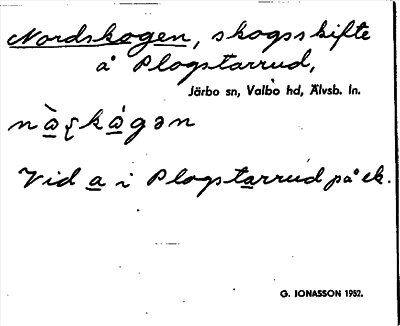 Nordskogen, skogsskifte
å Plogstarrud,
Järbo sn, Valbo hd, Älvsb. ln.
Vid a i Plogstarrud på ek.
G. IONASSON 1952.